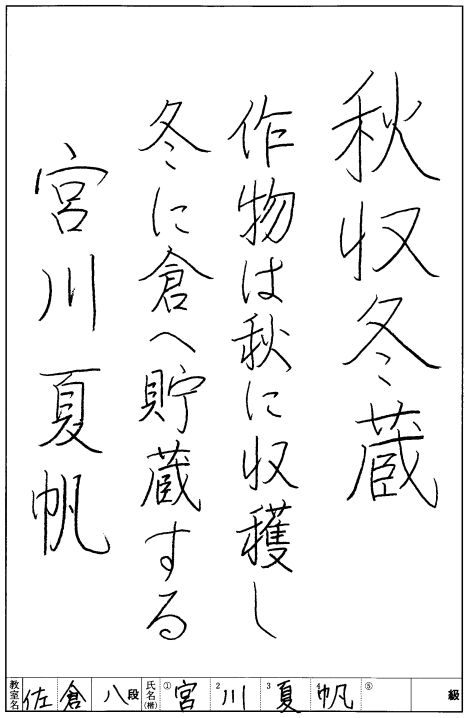 秋収冬蔵
作物は秋に収穫し
冬に倉へ貯蔵する
宮川夏帆
教室名 佐倉 八段 氏名(楷) ①宮 2川 3夏 4帆 ⑤ 級